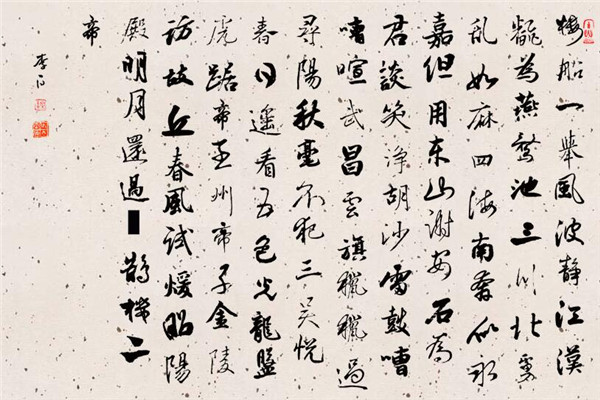 樓船一舉風波静江漢
翻為燕鶩池三川北虜
乱如麻四海南奔似永
嘉但用东山谢安石為
君談笑净胡沙雷鼓嘈
嘈喧武昌雲旗獵獵過
尋陽秋毫不犯三吴悦
春日遥看五色光龍盤
虎踞帝王州帝子金陵
访故丘春風试煖昭陽
殿明月還過鵲樓二
帝
李白